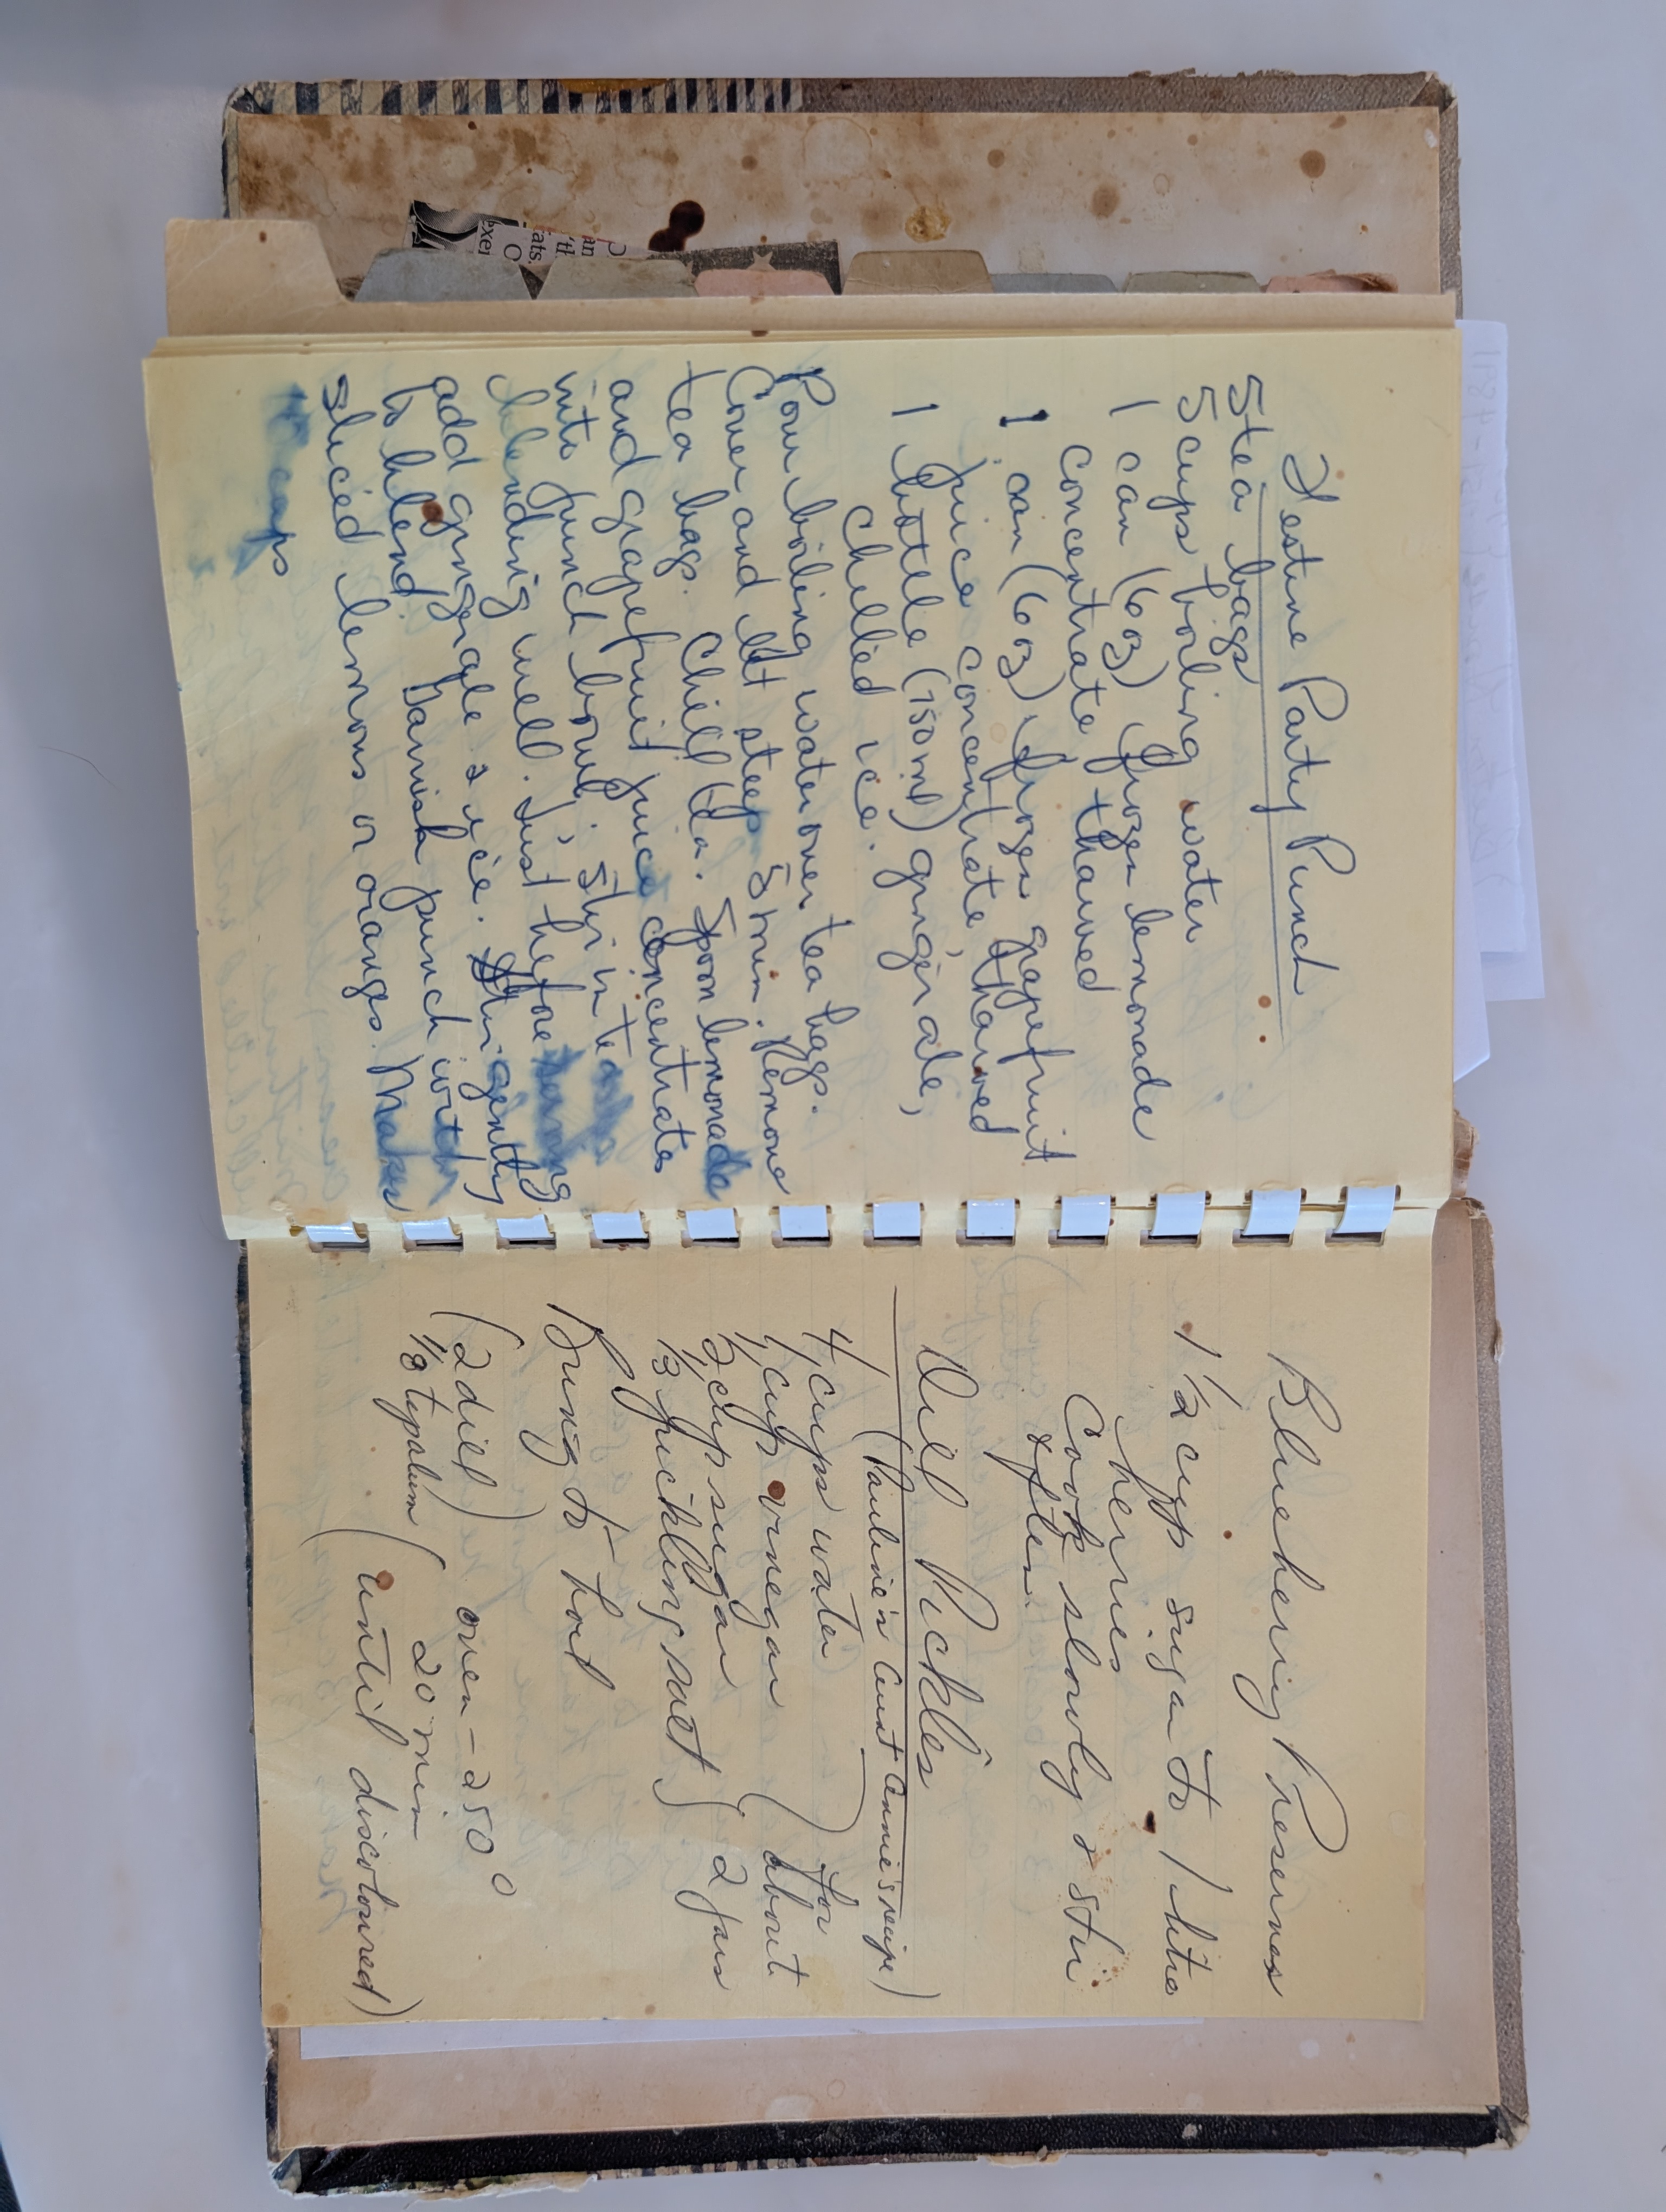 Festive Party Punch
5 tea bags
5 cups boiling water
1 can (6 oz) frozen lemonade
concentrate thawed
1 can (6 oz) frozen grapefruit
juice concentrate, thawed
1 bottle (750 ml) gingerale,
Chilled ice.
Pour boiling water over tea bags.
Cover and let steep 5 min. Remove
tea bags. Chill tea. Spoon lemonade
and grapefruit juice concentrates
into punch bowl; stir in tea
blending well. Just before serving
add gingerale & ice. Stir gently
to blend. Garnish punch with
sliced lemons or oranges. Makes
cups
Blueberry Preserves
1 1/2 cup sugar to 1 litre
berries
Cook slowly & stir
often
Dill Pickles
(Pauline's Aunt Annie's recipe)
4 cups water
1 cup vinegar
1/2 cup sugar
1/3 pickling salt
for
about
2 jars
Bring to boil
(2 dill)
1/8 tsp alum
oven - 250°
20 min
(until discoloured)
exer
ats.
O
'th
an